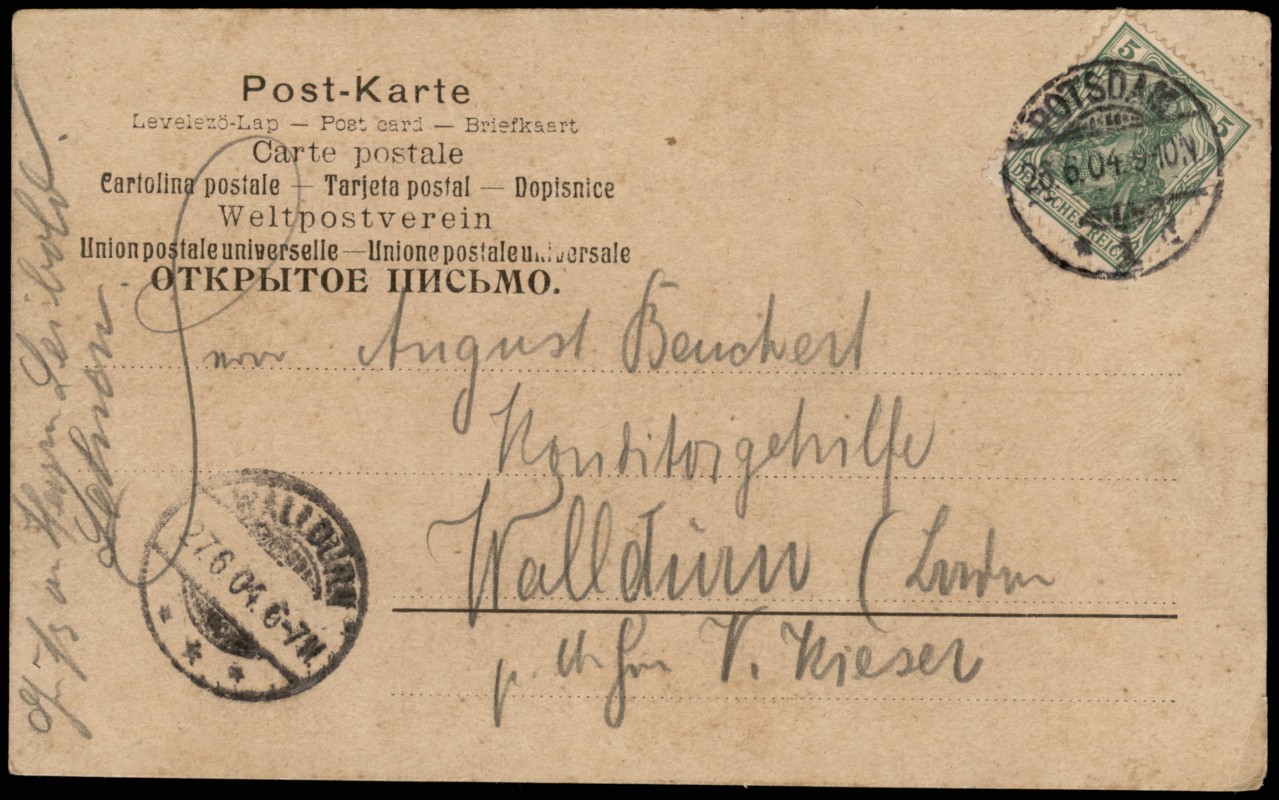 Post-Karte
Levelezö-Lap — Post card — Briefkaart
Carte postale
Cartolina postale — Tarjeta postal — Dopisnice
Weltpostverein
Union postale universelle — Unione postale universale
ОТКРЫТОЕ ПИСЬМО.
POTSDAM
6.04.9-10N.
5
5
DEUTSCHES REICH
August Beuchert
Konditorgehilfe
Walldürn (Baden
V. Kieser
WALLDÜRN
27.6.04.6-7N.
Leibold